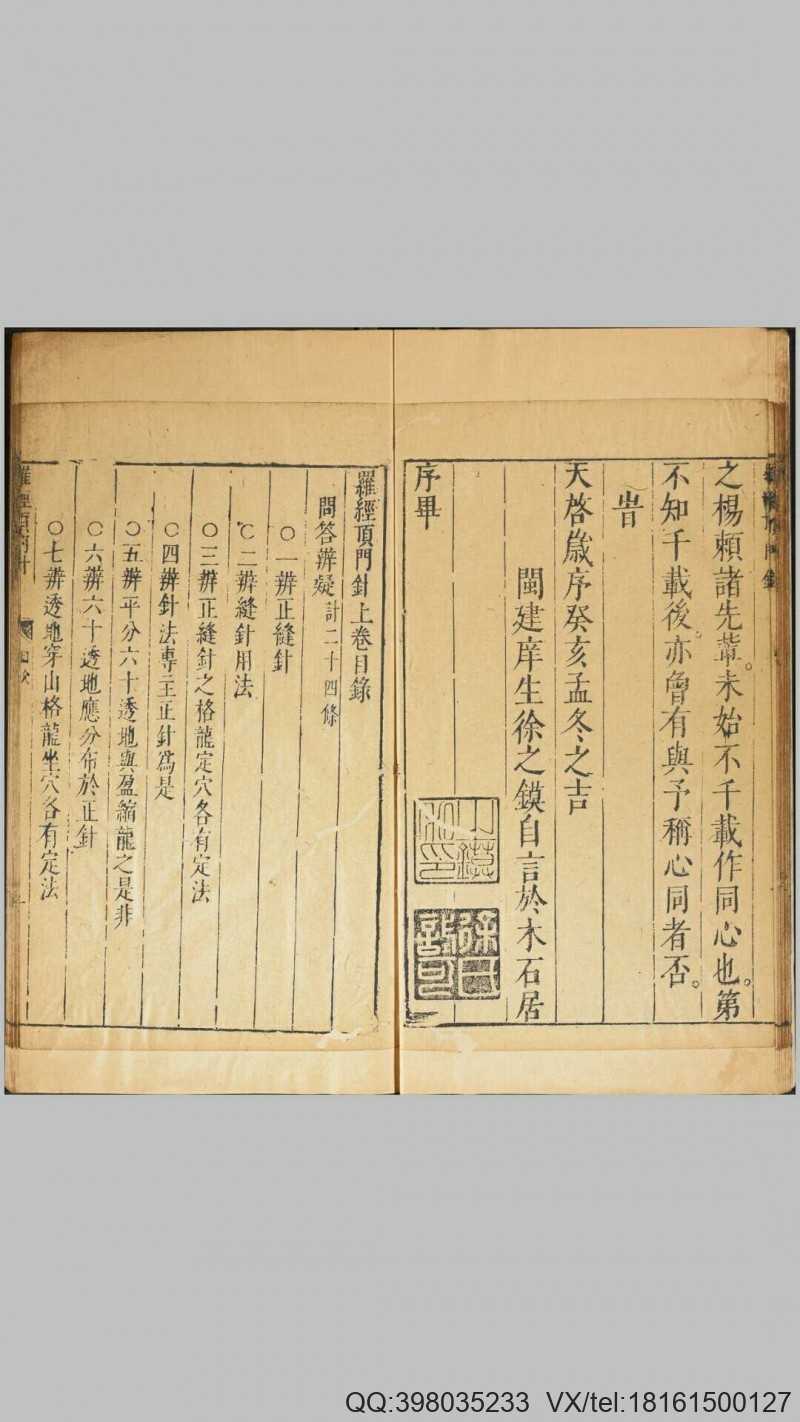 之楊賴諸先軰未始不千載作同心也第
不知千載後亦會有與予稱心同者否
旹
天啓歲序癸亥孟冬之吉
閩建庠生徐之鏌自言於木石居
序畢
羅經頂門針上卷目錄
問答辨疑計二十四條
○一辨正縫針
○二辨縫針用法
○三辨正縫針之格龍定穴各有定法
○四辨針法專主正針爲是
○五辨平分六十透地與盈縮龍之是非
○六辨六十透地應分布於正針
○七辨透地穿山格龍坐穴各有定法
羅經頂門針
QQ:398035233 VX/tel:18161500127